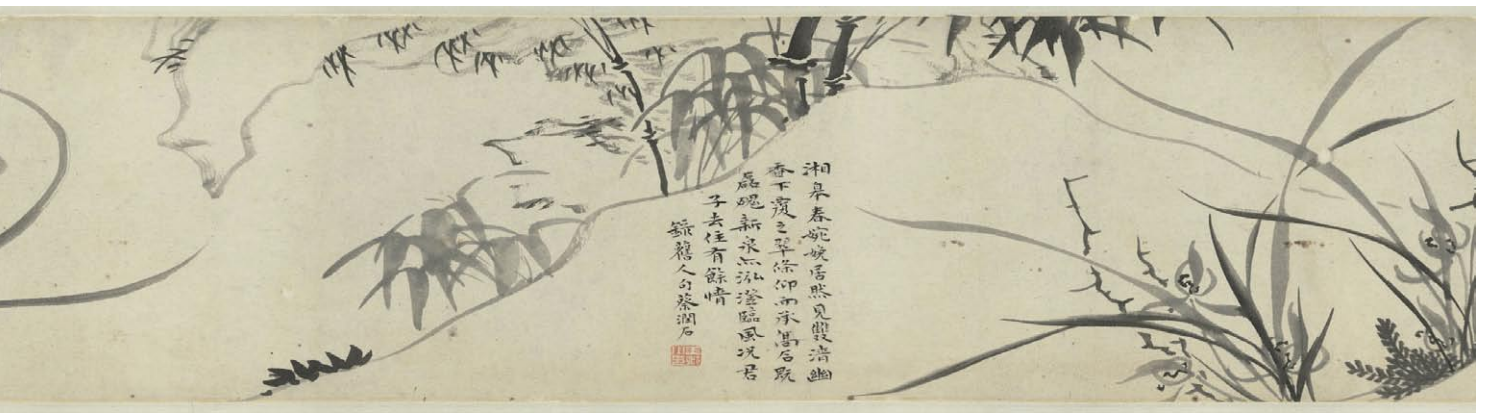 湘皋春婉娩居然見雙清幽
香下覆之翠條仰而承高石既
磊磈新泉亦泓澄臨風況君
子去住有餘情
錄舊人句蔡潤石